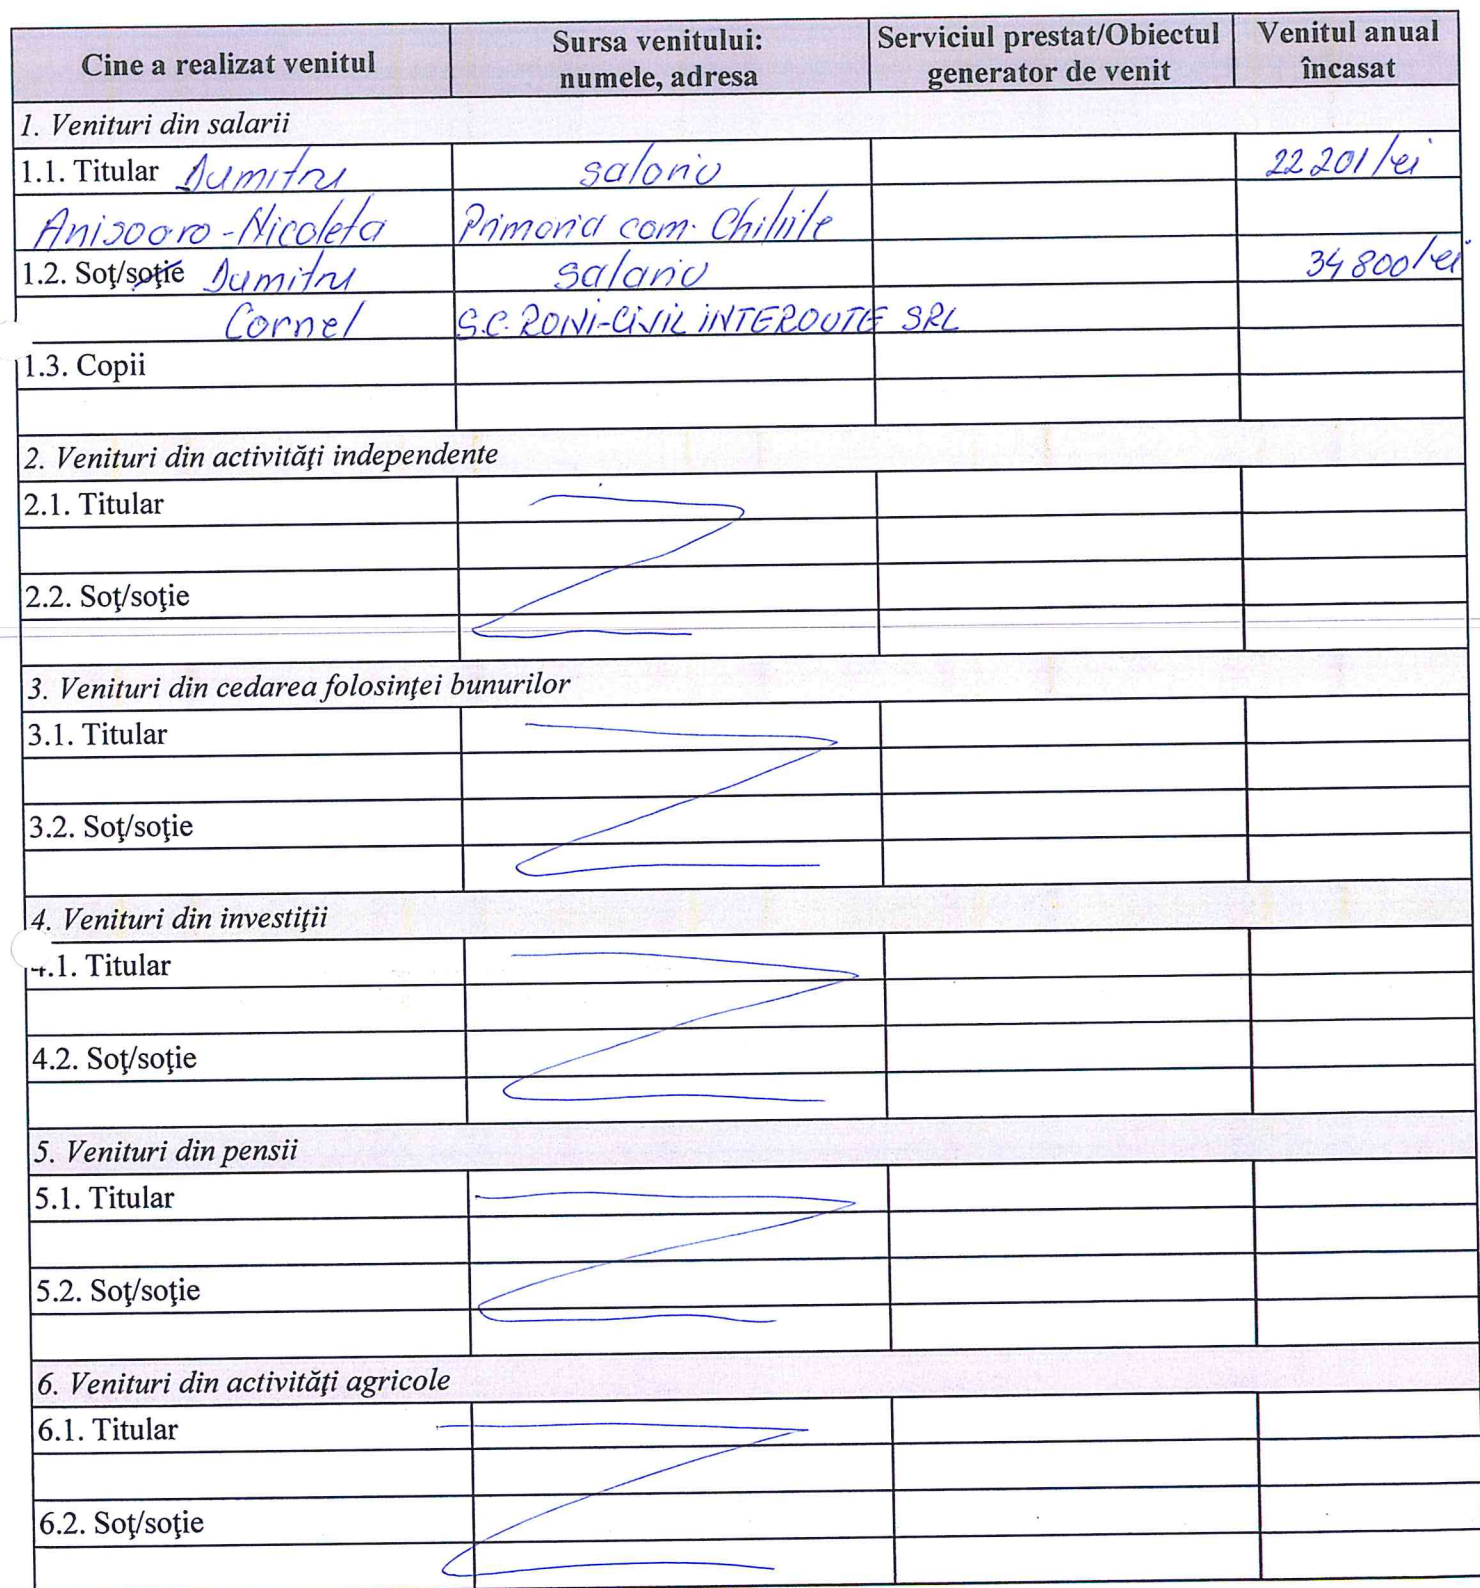 Cine a realizat venitul | Sursa venitului: numele, adresa | Serviciul prestat/Obiectul generator de venit | Venitul anual încasat
1. Venituri din salarii
1.1. Titular Dumitru | salariu | | 22 201 lei
Anisoara-Nicoleta | Primaria com. Chiliile
1.2. Soţ/soţie Dumitru | salariu | | 34 800 lei
Cornel | S.C. RONI-CIVIL INTEROUTE SRL
1.3. Copii
2. Venituri din activităţi independente
2.1. Titular
2.2. Soţ/soţie
3. Venituri din cedarea folosinţei bunurilor
3.1. Titular
3.2. Soţ/soţie
4. Venituri din investiţii
4.1. Titular
4.2. Soţ/soţie
5. Venituri din pensii
5.1. Titular
5.2. Soţ/soţie
6. Venituri din activităţi agricole
6.1. Titular
6.2. Soţ/soţie